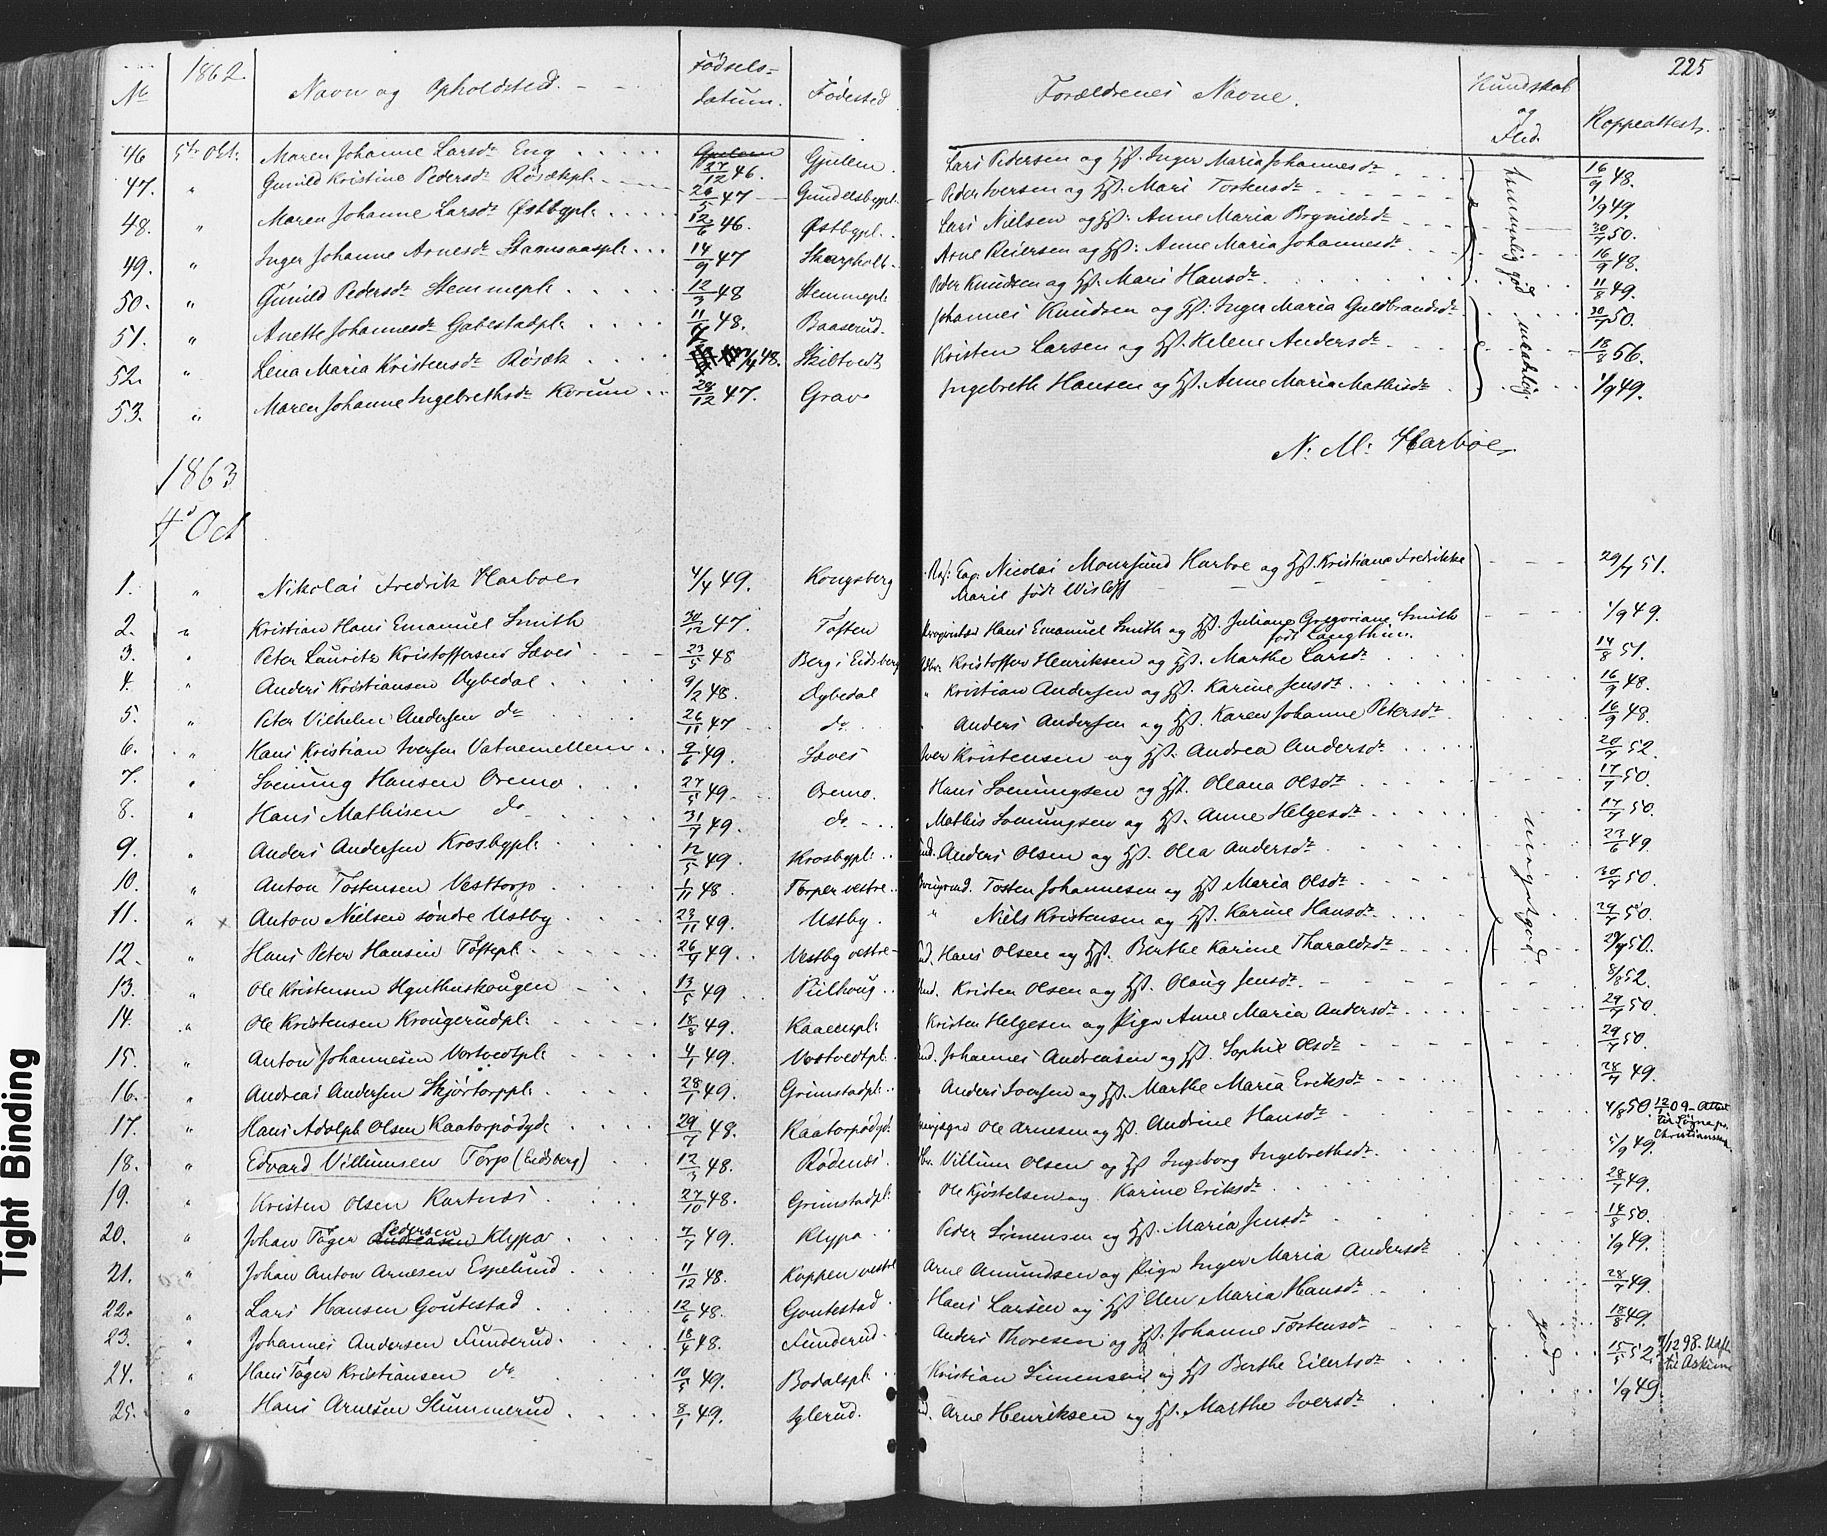 225
No 1862. Navn og Opholdsted. Fødsels- datum. Fødested Forældrenes Navne. Kundskab og Flid. Koppeattest.
46 5te Okt. Maren Johanne Larsdr Eng 27/12 46. Gjulem Lars Pedersen og Hst. Inger Maria Johannesdr 16/9 48.
47. " Gunild Kristine Pedersdr Røsækpl. 26/5 47 Gundelsbypl. Peder Iversen og Hst. Mari Tostensdr 1/9 49.
48. " Maren Johanne Larsdr Østbypl. 12/6 46. Østbypl. Lars Nielsen og Hst: Anne Maria Brynildsdr 30/7 50.
49. " Inger Johanne Arnesdr Stamsaaspl. 14/9 47 Skarpholt Arne Reiersen og Hst: Anne Maria Johannesdr 16/9 48.
50. " Gunild Pedersdr Stemmepl. 12/3 48 Stemmepl. Peder Knudsen og Hst. Mari Hansdr 11/8 49.
51. " Anette Johannesdr Gabestadpl. 48. Baaserud. Johannes Knudsen og Hst. Inger Maria Guldbrandsdr 30/7 50.
52. " Lena Maria Kristensdr Røsæk 48. Skibtvedt Kristen Larsen og Hst. Helene Andersdr 18/8 56.
53. " Maren Johanne Ingebrethsdr Korum 29/12 47. Grav Ingebreth Hansen og Hst. Anne Maria Mathisdr 1/9 49.
N. M. Harboe
1863
4de Oct
1. " Nikolai Fredrik Harboe 4/4 49. Kongsberg Res: Cap. Nicolai Moursund Harboe og Hst. Kristiane Fredrikke Marie født Wisløff 29/7 51.
2. " Kristian Hans Emanuel Smith 30/12 47. Toften Hans Emanuel Smith og Hst. Juliane Gregoriane Smith født 1/9 49.
3. " Peter Lauritz Kristoffersen Sæves 23/5 48 Berg i Eidsberg Kristoffer Henriksen og Hst. Marthe Larsdr 14/8 51.
4. " Anders Kristiansen Dybedal 9/2 48. Dybedal " Kristian Andersen og Hst. Karine Jensdr 16/9 48.
5. " Peter Vilhelm Andersen do 26/11 47 do Anders Andersen og Hst. Karen Johanne Petersdr 16/9 48.
6. " Hans Kristian Iversen Vatnemellem 9/6 49. Sæves Iver Kristensen og Hst. Andrea Andersdr 20/7 52.
7. " Svenung Hansen Oremo 27/5 49. Oremo. Hans Svenungsen og Hst. Oleana Olsdr 17/7 50.
8. " Hans Mathisen do 31/7 49. do Mathis Svenungsen og Hst. Anne Helgesdr 17/7 50.
9. " Anders Andersen Krosbypl. 12/5 49. Krosbypl. Anders Olsen og Hst. Olea Andersdr 23/6 49.
10. " Anton Tostensen Vesttorp 1/11 48. Torper vestre Tosten Johannesen og Hst. Maria Olsdr 30/7 50.
11. " x Anton Nielsen søndre Ustby 23/11 49. Ustby. " Niels Kristensen og Hst. Karine Hansdr 29/7 50.
12. " Hans Peter Hansen Toftepl. 26/4 49. Vestby vestre Hans Olsen og Hst. Berthe Karine Tharaldsdr 29/7 50.
13. " Ole Kristensen Hynthuskougen 13/5 49 Piilhoug Kristen Olsen og Hst. Olaug Jensdr 8/8 52.
14. " Ole Kristensen Krougerudpl. 18/8 49. Kaaenspl. Kristen Helgesen og Pige Anne Maria Andersdr 29/7 50.
15. " Anton Johannesen Vestvedtpl. 4/1 49. Vestvedtpl. Johannes Andreassen og Hst. Sophie Olsdr 29/7 50.
16. " Andreas Andersen Skjørtorppl. 28/1 49. Grimstadpl. Anders Iversen og Hst. Marthe Maria Eriksdr 28/7 49.
17. " Hans Adolph Olsen Kaatorpødyd. 29/7 48. Kaatorpødyd. Ole Arnesen og Hst. Andrine Hansdr 4/8 50. 12/1 09 - Attest til Søgne pr. Christianssand
18. " Edvard Villumsen Torp (Eidsberg) 12/3 48. Rødenæs. Villum Olsen og Hst Ingeborg Ingebrethsdr 5/9 49.
19. " Kristen Olsen Kartnæs 27/10 48. Grimstadpl. Ole Kjøstelsen og Karine Eriksdr 28/7 49.
20. " Johan Toger Andreasen Pedersen Klypa 7/7 49. Klypa. Peder Simensen og Hst. Maria Jensdr 14/8 50.
21. " Johan Anton Arnesen Espelund 11/12 48. Koppen vestre Arne Amundsen og Pige Inger Maria Andersdr 1/9 49.
22. " Lars Hansen Goutestad 12/6 48. Goutestad Hans Larsen og Hst Elen Maria Hansdr 28/7 49.
23. " Johannes Andersen Funderud. 18/4 48. Funderud. Anders Thoresen og Hst. Johanne Tostensdr 18/8 49.
24. " Hans Toger Kristiansen do 10/5 49. Bodalspl. Kristian Simensen og Hst Berthe Eilertsdr 15/5 52. 12 98. til Askim
25. " Hans Arnesen Slummerud 8/1 49. Iglerud. Arne Henriksen og Hst. Marthe Iversdr 1/9 49.
temmelig god
maadelig.
meget god
god
Tight Binding